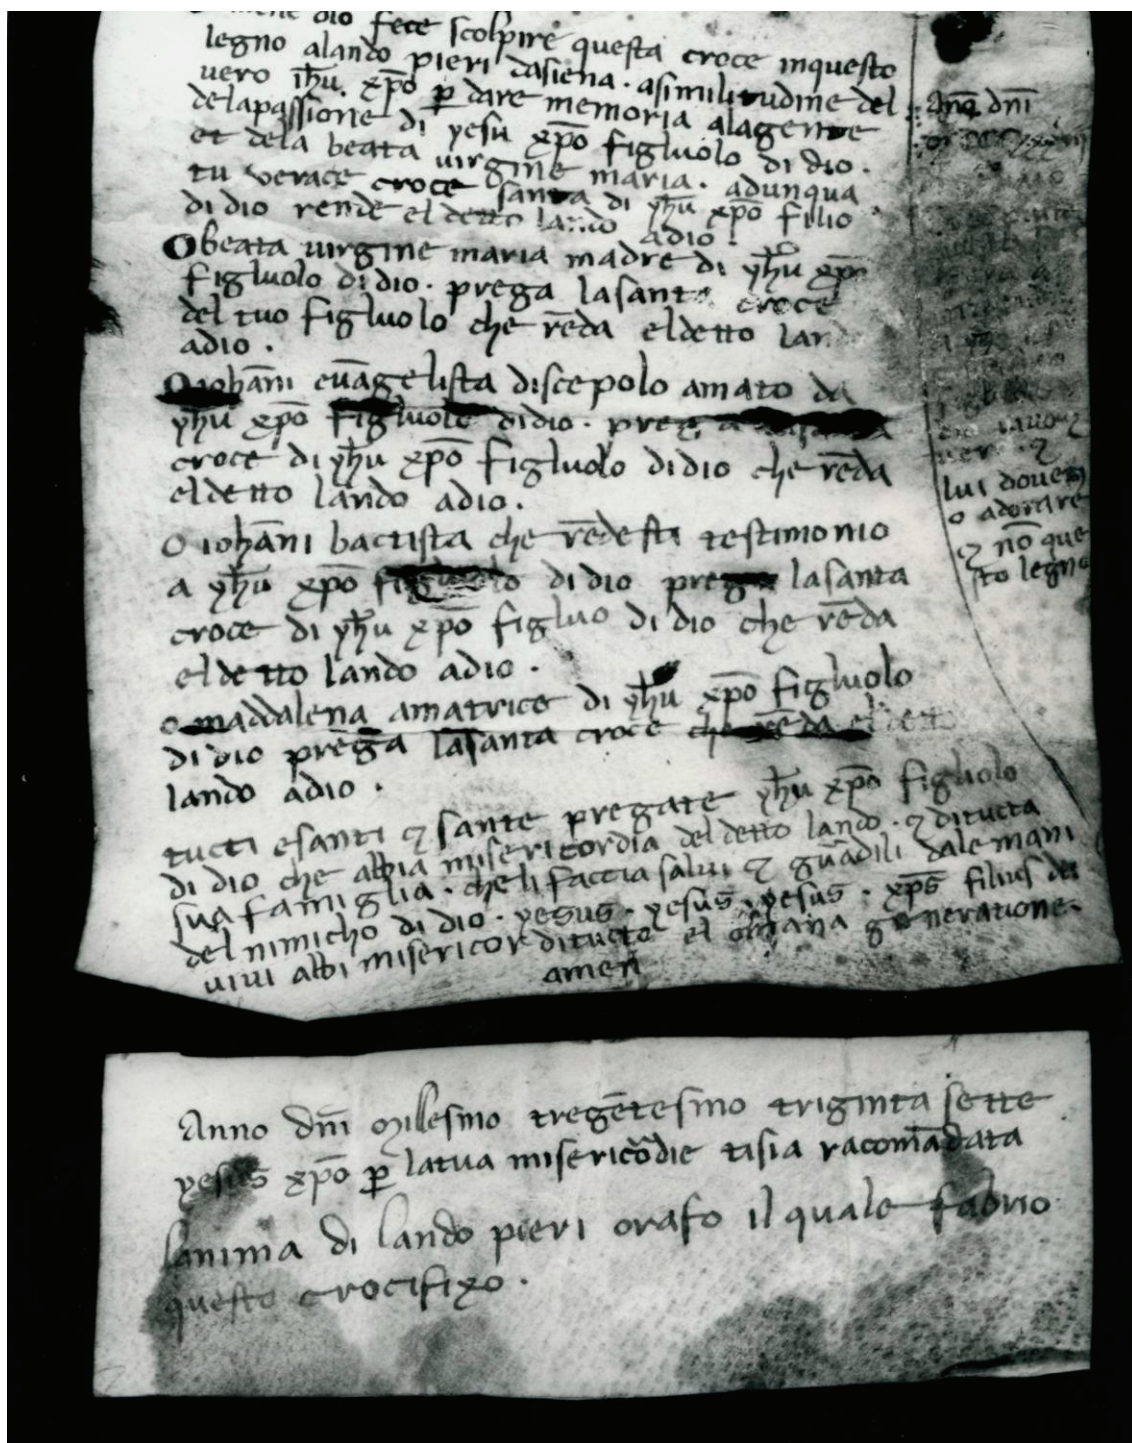 dio fece scolpire questa croce inquesto
legno alando pieri dasiena · asimilitudine del
vero yħu̅. xp̅o ꝑ dare memoria alagente
delapassione di yesu xp̅o figluolo di dio ·
et dela beata virgine maria · adunqua
tu verace croce santa di yħu̅ xp̅o filio
di dio rende el detto lando adio ·
Obeata virgine maria madre di yħu̅ xp̅o
figluolo di dio · prega lasanta croce
del tuo figluolo che re̅da eldetto lando
adio ·
O ioha̅ni eua̅gelista discepolo amato da
yħu̅ xp̅o figluolo didio · prega
croce di yħu̅ xp̅o figluolo didio che re̅da
eldetto lando adio ·
O ioha̅ni bactista che re̅desti testimonio
a yħu̅ xp̅o figluolo di dio prega lasanta
croce di yħu̅ xp̅o figluo di dio che re̅da
eldetto lando adio ·
o maddalena amatrice di yħu̅ xp̅o figluolo
di dio prega lasanta croce che re̅da eldetto
lando adio ·
tucti esanti ⁊ sante pregate yħu̅ xp̅o figluolo
di dio che abbia misericordia deldetto lando · ⁊ ditucta
sua famiglia · cheli faccia salui ⁊ gua̅dili dale mani
del nimicho di dio · yesus · yesus · yesus · xp̅s filius dei
uiui abbi misericor ditucta el generatione ·
amen
Ano dn̅i
lui douem
o adorare
⁊ no̅ que
sto legno
Anno dn̅i Milesimo trege̅tesimo triginta sette
yesus xp̅o ꝑ latua misericо̅die tisia racoma̅data
lanima di lando pieri orafo il quale fabrio
questo crocifixo ·